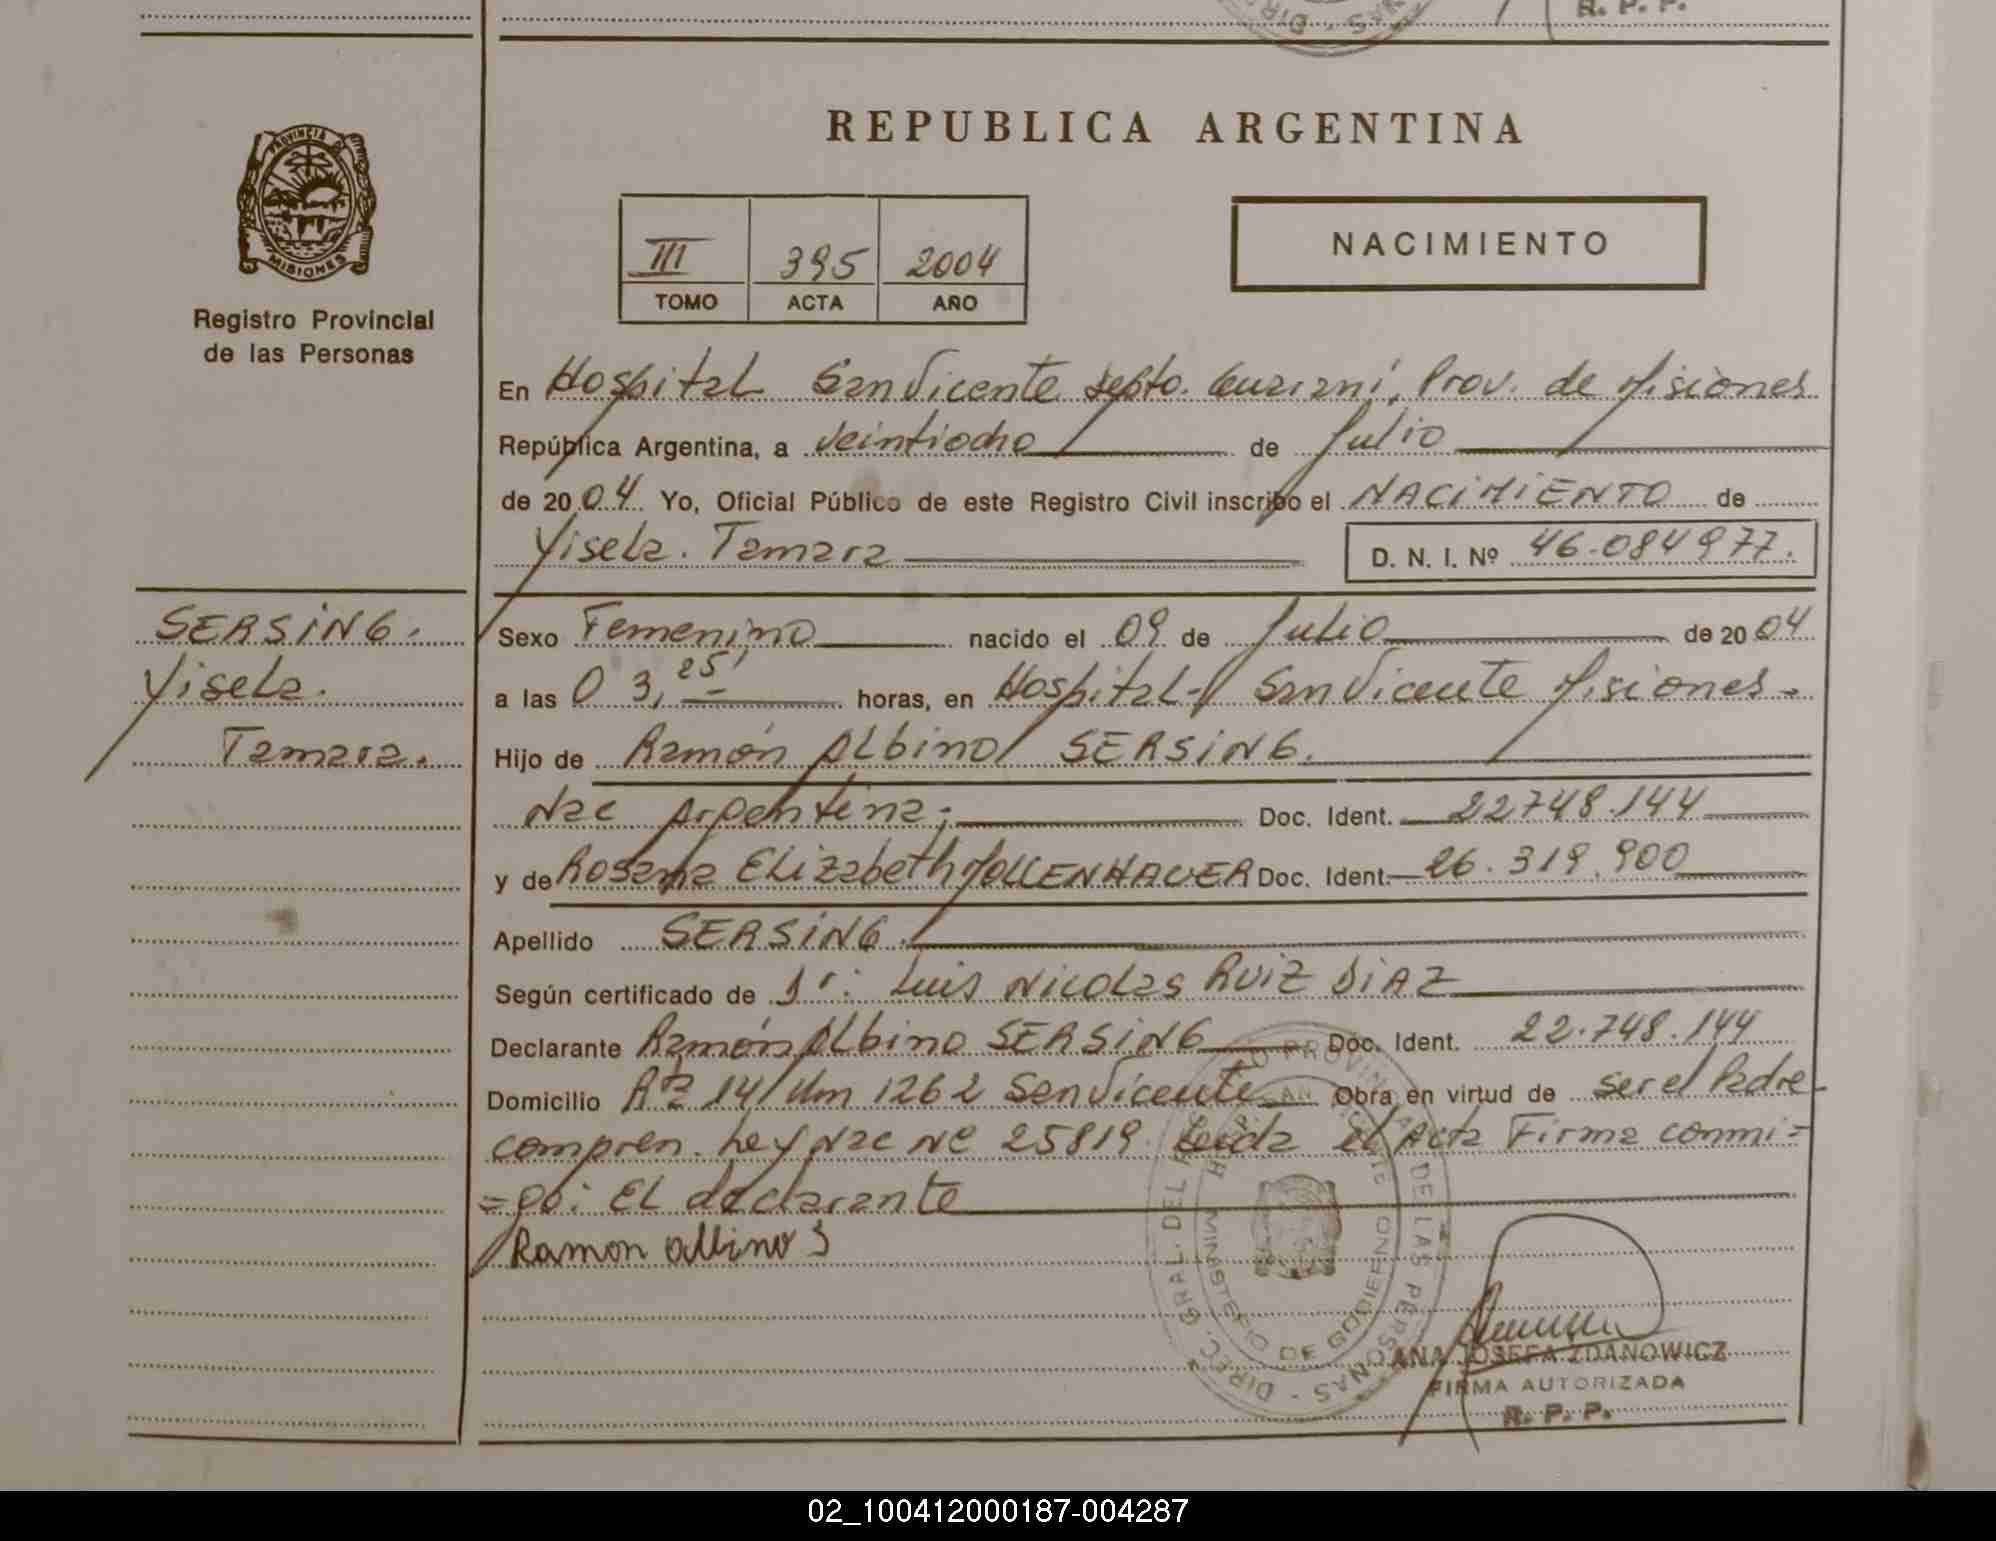 R. P. P.
REPUBLICA ARGENTINA
PROVINCIA DE MISIONES
Registro Provincial
de las Personas
III 395 2004
TOMO ACTA AÑO
NACIMIENTO
En Hospital San Vicente Depto. Guaraní, Prov. de Misiones
República Argentina, a Veintiocho de Julio
de 2004 Yo, Oficial Público de este Registro Civil inscribo el NACIMIENTO de
Yisela. Tamara D. N. I. Nº 46.084977.
SERSING.
Yisela.
Tamara.
Sexo Femenino nacido el 09 de Julio de 2004
a las 03,25' horas, en Hospital San Vicente Misiones.
Hijo de Ramón Albino SERSING.
Nac Argentina; Doc. Ident. 22748.144
y de Rosana Elizabeth MOLLENHAUER Doc. Ident. 26.319.900
Apellido SERSING.
Según certificado de Dr: Luis Nicolas RUIZ DIAZ
Declarante Ramón Albino SERSING Doc. Ident. 22.748.144
Domicilio Rta 14 Km 1262 San Vicente Obra en virtud de ser el Padre
compren. Ley Nac Nº 25819. Leida el Acta Firma conmi=
=go: El declarante
Ramon albino S
DIREC. GRAL. DEL REGISTRO PROVINCIAL DE LAS PERSONAS -
HOSP. SAN VICENTE
MINISTERIO DE GOBIERNO
ANA JOSEFA ZDANOWICZ
FIRMA AUTORIZADA
R. P. P.
02_100412000187-004287